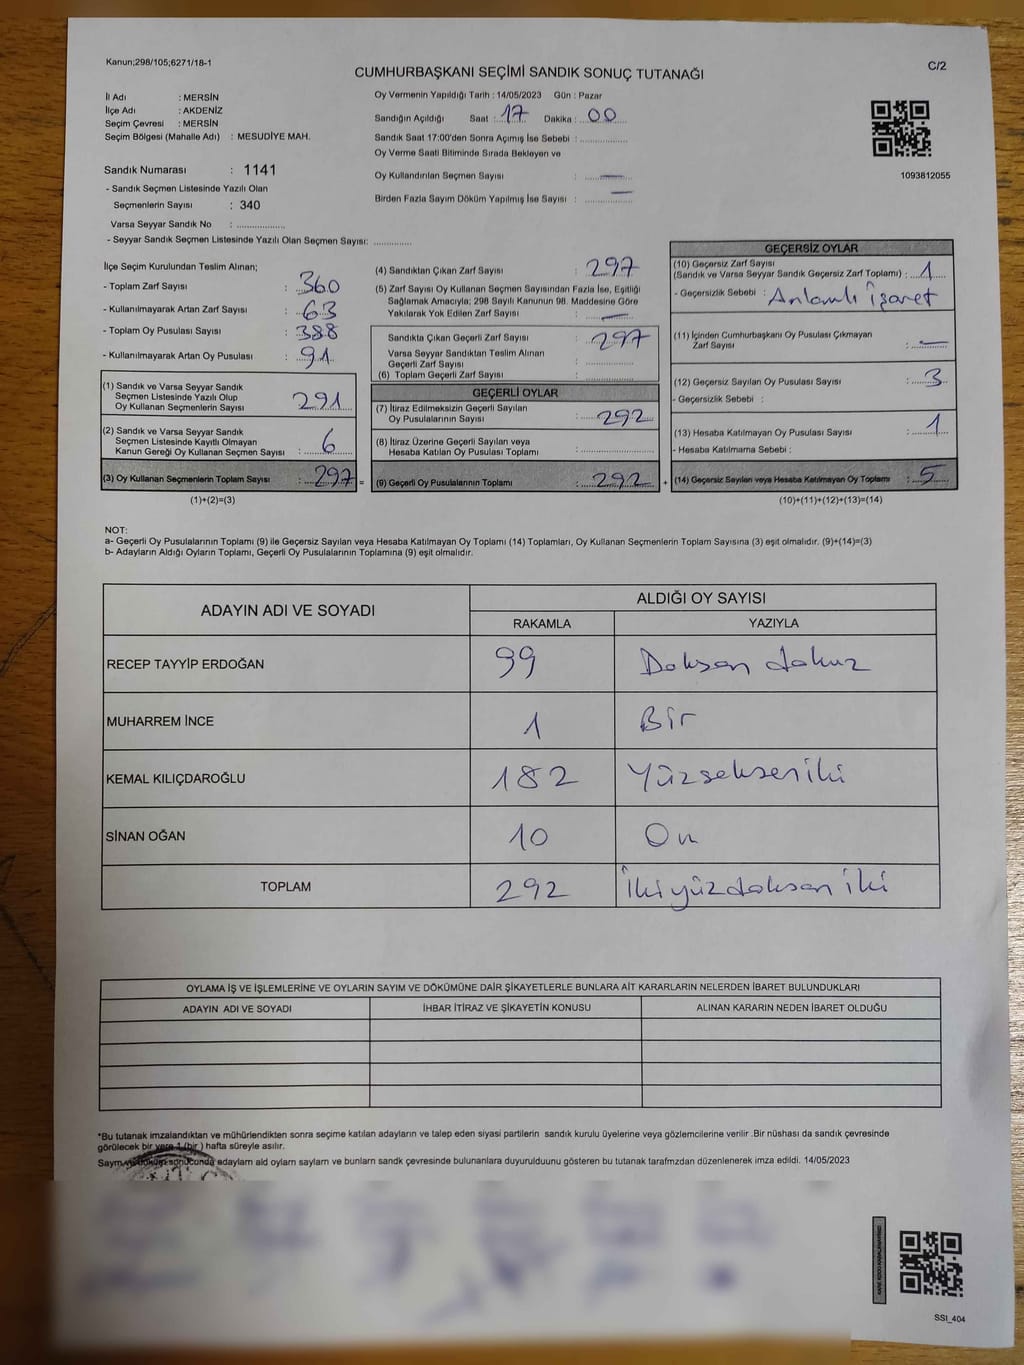 Kanun;298/105;6271/18-1
C/2
CUMHURBAŞKANI SEÇİMİ SANDIK SONUÇ TUTANAĞI
İl Adı : MERSİN
İlçe Adı : AKDENİZ
Seçim Çevresi : MERSİN
Seçim Bölgesi (Mahalle Adı) : MESUDİYE MAH.
Sandık Numarası : 1141
- Sandık Seçmen Listesinde Yazılı Olan
Seçmenlerin Sayısı : 340
Varsa Seyyar Sandık No : ................
- Seyyar Sandık Seçmen Listesinde Yazılı Olan Seçmen Sayısı: ............
Oy Vermenin Yapıldığı Tarih : 14/05/2023 Gün : Pazar
Sandığın Açıldığı Saat : 17 Dakika : 00
Sandık Saat 17:00'den Sonra Açımış İse Sebebi : ................
Oy Verme Saati Bitiminde Sırada Bekleyen ve
Oy Kullandırılan Seçmen Sayısı : —
Birden Fazla Sayım Döküm Yapılmış İse Sayısı : —
1093812055
İlçe Seçim Kurulundan Teslim Alınan;
- Toplam Zarf Sayısı : 360
- Kullanılmayarak Artan Zarf Sayısı : 63
- Toplam Oy Pusulası Sayısı : 388
- Kullanılmayarak Artan Oy Pusulası : 91
(1) Sandık ve Varsa Seyyar Sandık
Seçmen Listesinde Yazılı Olup
Oy Kullanan Seçmenlerin Sayısı : 291
(2) Sandık ve Varsa Seyyar Sandık
Seçmen Listesinde Kayıtlı Olmayan
Kanun Gereği Oy Kullanan Seçmen Sayısı : 6
(3) Oy Kullanan Seçmenlerin Toplam Sayısı : 297 =
(1)+(2)=(3)
(4) Sandıktan Çıkan Zarf Sayısı : 297
(5) Zarf Sayısı Oy Kullanan Seçmen Sayısından Fazla İse, Eşitliği
Sağlamak Amacıyla; 298 Sayılı Kanunun 98. Maddesine Göre
Yakılarak Yok Edilen Zarf Sayısı : —
Sandıkta Çıkan Geçerli Zarf Sayısı : 297
Varsa Seyyar Sandıktan Teslim Alınan
Geçerli Zarf Sayısı : ................
(6) Toplam Geçerli Zarf Sayısı : ................
GEÇERLİ OYLAR
(7) İtiraz Edilmeksizin Geçerli Sayılan
Oy Pusulalarının Sayısı : 292
(8) İtiraz Üzerine Geçerli Sayılan veya
Hesaba Katılan Oy Pusulası Toplamı : ................
(9) Geçerli Oy Pusulalarının Toplamı : 292 +
GEÇERSİZ OYLAR
(10) Geçersiz Zarf Sayısı
(Sandık ve Varsa Seyyar Sandık Geçersiz Zarf Toplamı) : 1
- Geçersizlik Sebebi : Anlamlı İşaret
(11) İçinden Cumhurbaşkanı Oy Pusulası Çıkmayan
Zarf Sayısı : —
(12) Geçersiz Sayılan Oy Pusulası Sayısı : 3
- Geçersizlik Sebebi :
(13) Hesaba Katılmayan Oy Pusulası Sayısı : 1
- Hesaba Katılmama Sebebi :
(14) Geçersiz Sayılan veya Hesaba Katılmayan Oy Toplamı : 5
(10)+(11)+(12)+(13)=(14)
NOT:
a- Geçerli Oy Pusulalarının Toplamı (9) ile Geçersiz Sayılan veya Hesaba Katılmayan Oy Toplamı (14) Toplamları, Oy Kullanan Seçmenlerin Toplam Sayısına (3) eşit olmalıdır. (9)+(14)=(3)
b- Adayların Aldığı Oyların Toplamı, Geçerli Oy Pusulalarının Toplamına (9) eşit olmalıdır.
ADAYIN ADI VE SOYADI
ALDIĞI OY SAYISI
RAKAMLA YAZIYLA
RECEP TAYYİP ERDOĞAN 99 Doksan dokuz
MUHARREM İNCE 1 Bir
KEMAL KILIÇDAROĞLU 182 Yüzseksen iki
SİNAN OĞAN 10 On
TOPLAM 292 İkiyüzdoksan iki
OYLAMA İŞ VE İŞLEMLERİNE VE OYLARIN SAYIM VE DÖKÜMÜNE DAİR ŞİKAYETLERLE BUNLARA AİT KARARLARIN NELERDEN İBARET BULUNDUKLARI
ADAYIN ADI VE SOYADI İHBAR İTİRAZ VE ŞİKAYETİN KONUSU ALINAN KARARIN NEDEN İBARET OLDUĞU
*Bu tutanak imzalandıktan ve mühürlendikten sonra seçime katılan adayların ve talep eden siyasi partilerin sandık kurulu üyelerine veya gözlemcilerine verilir .Bir nüshası da sandık çevresinde
görülecek bir yere 1 (bir ) hafta süreyle asılır.
Saym ve döküm sonucunda adaylarn ald oylarn saylarn ve bunlarn sandk çevresinde bulunanlara duyurulduunu gösteren bu tutanak tarafmzdan düzenlenerek imza edildi. 14/05/2023
SSI_404